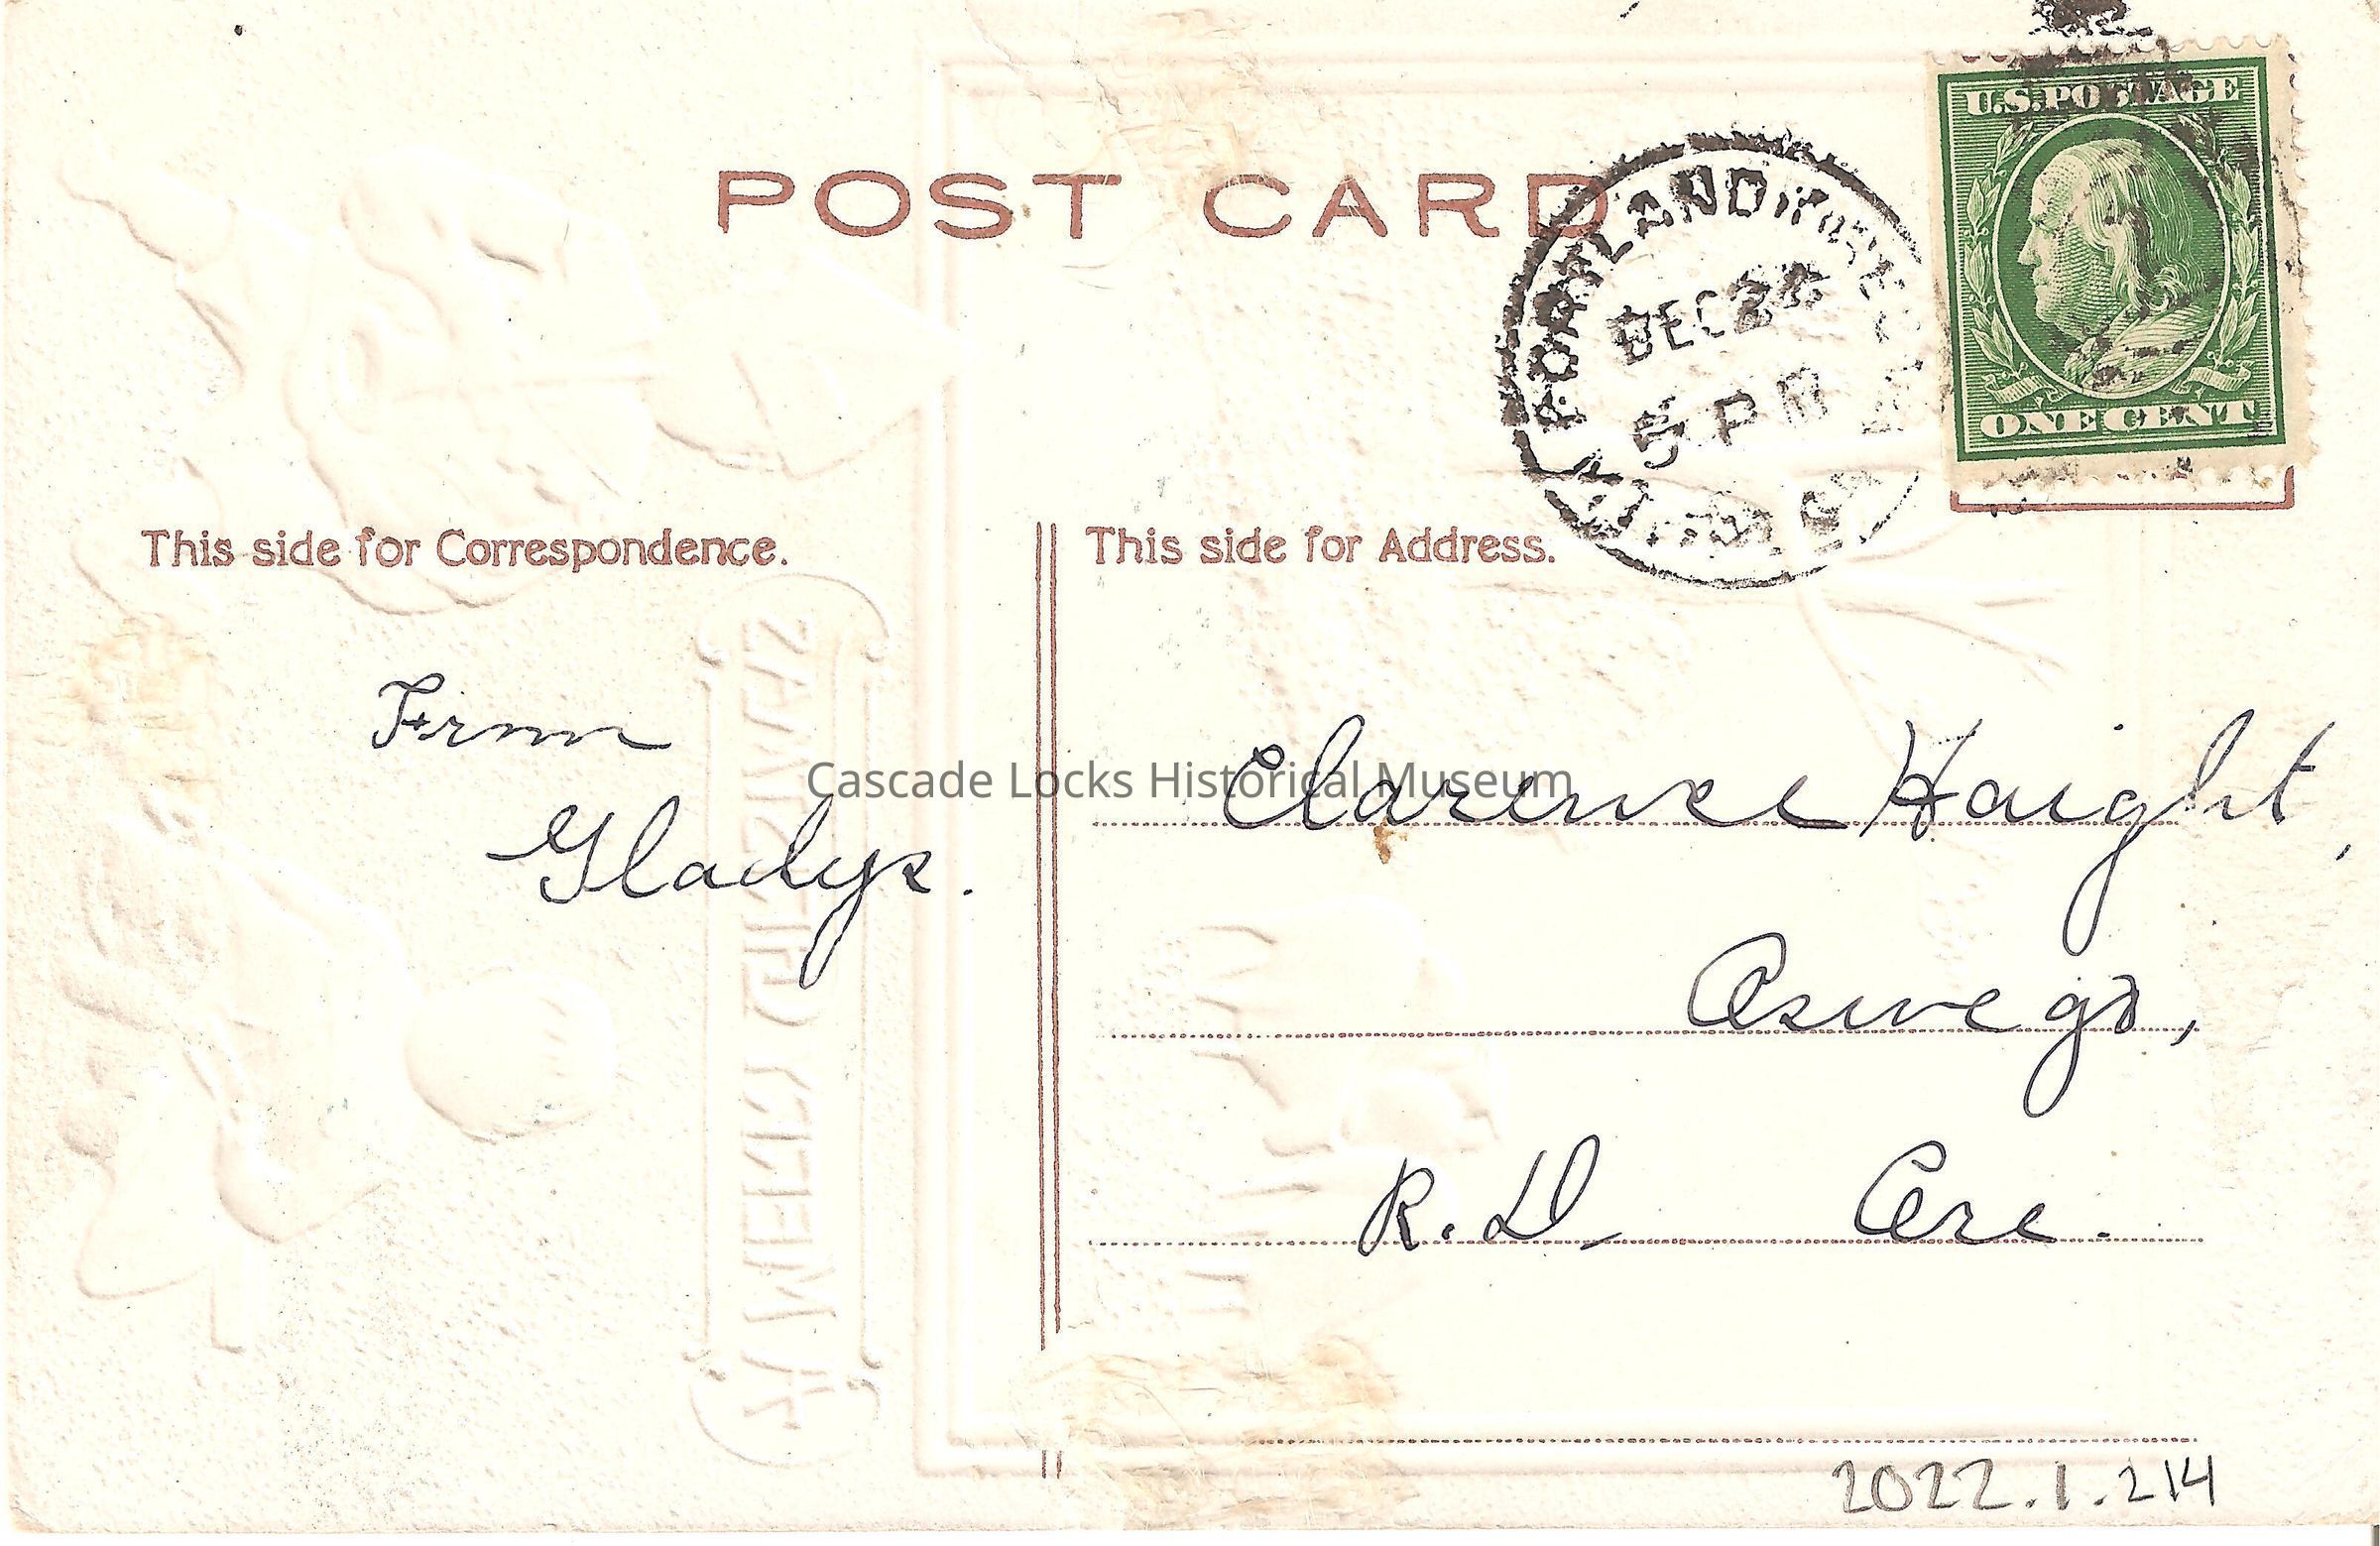 POST CARD
U.S. POSTAGE
PORTLAND
DEC 24
5 PM
ONE CENT
This side for Correspondence.
This side for Address.
From
Gladys.
Clarence Haight,
Oswego,
R. D. Ore.
MERRY CHRISTMAS
Cascade Locks Historical Museum
2022.1.214